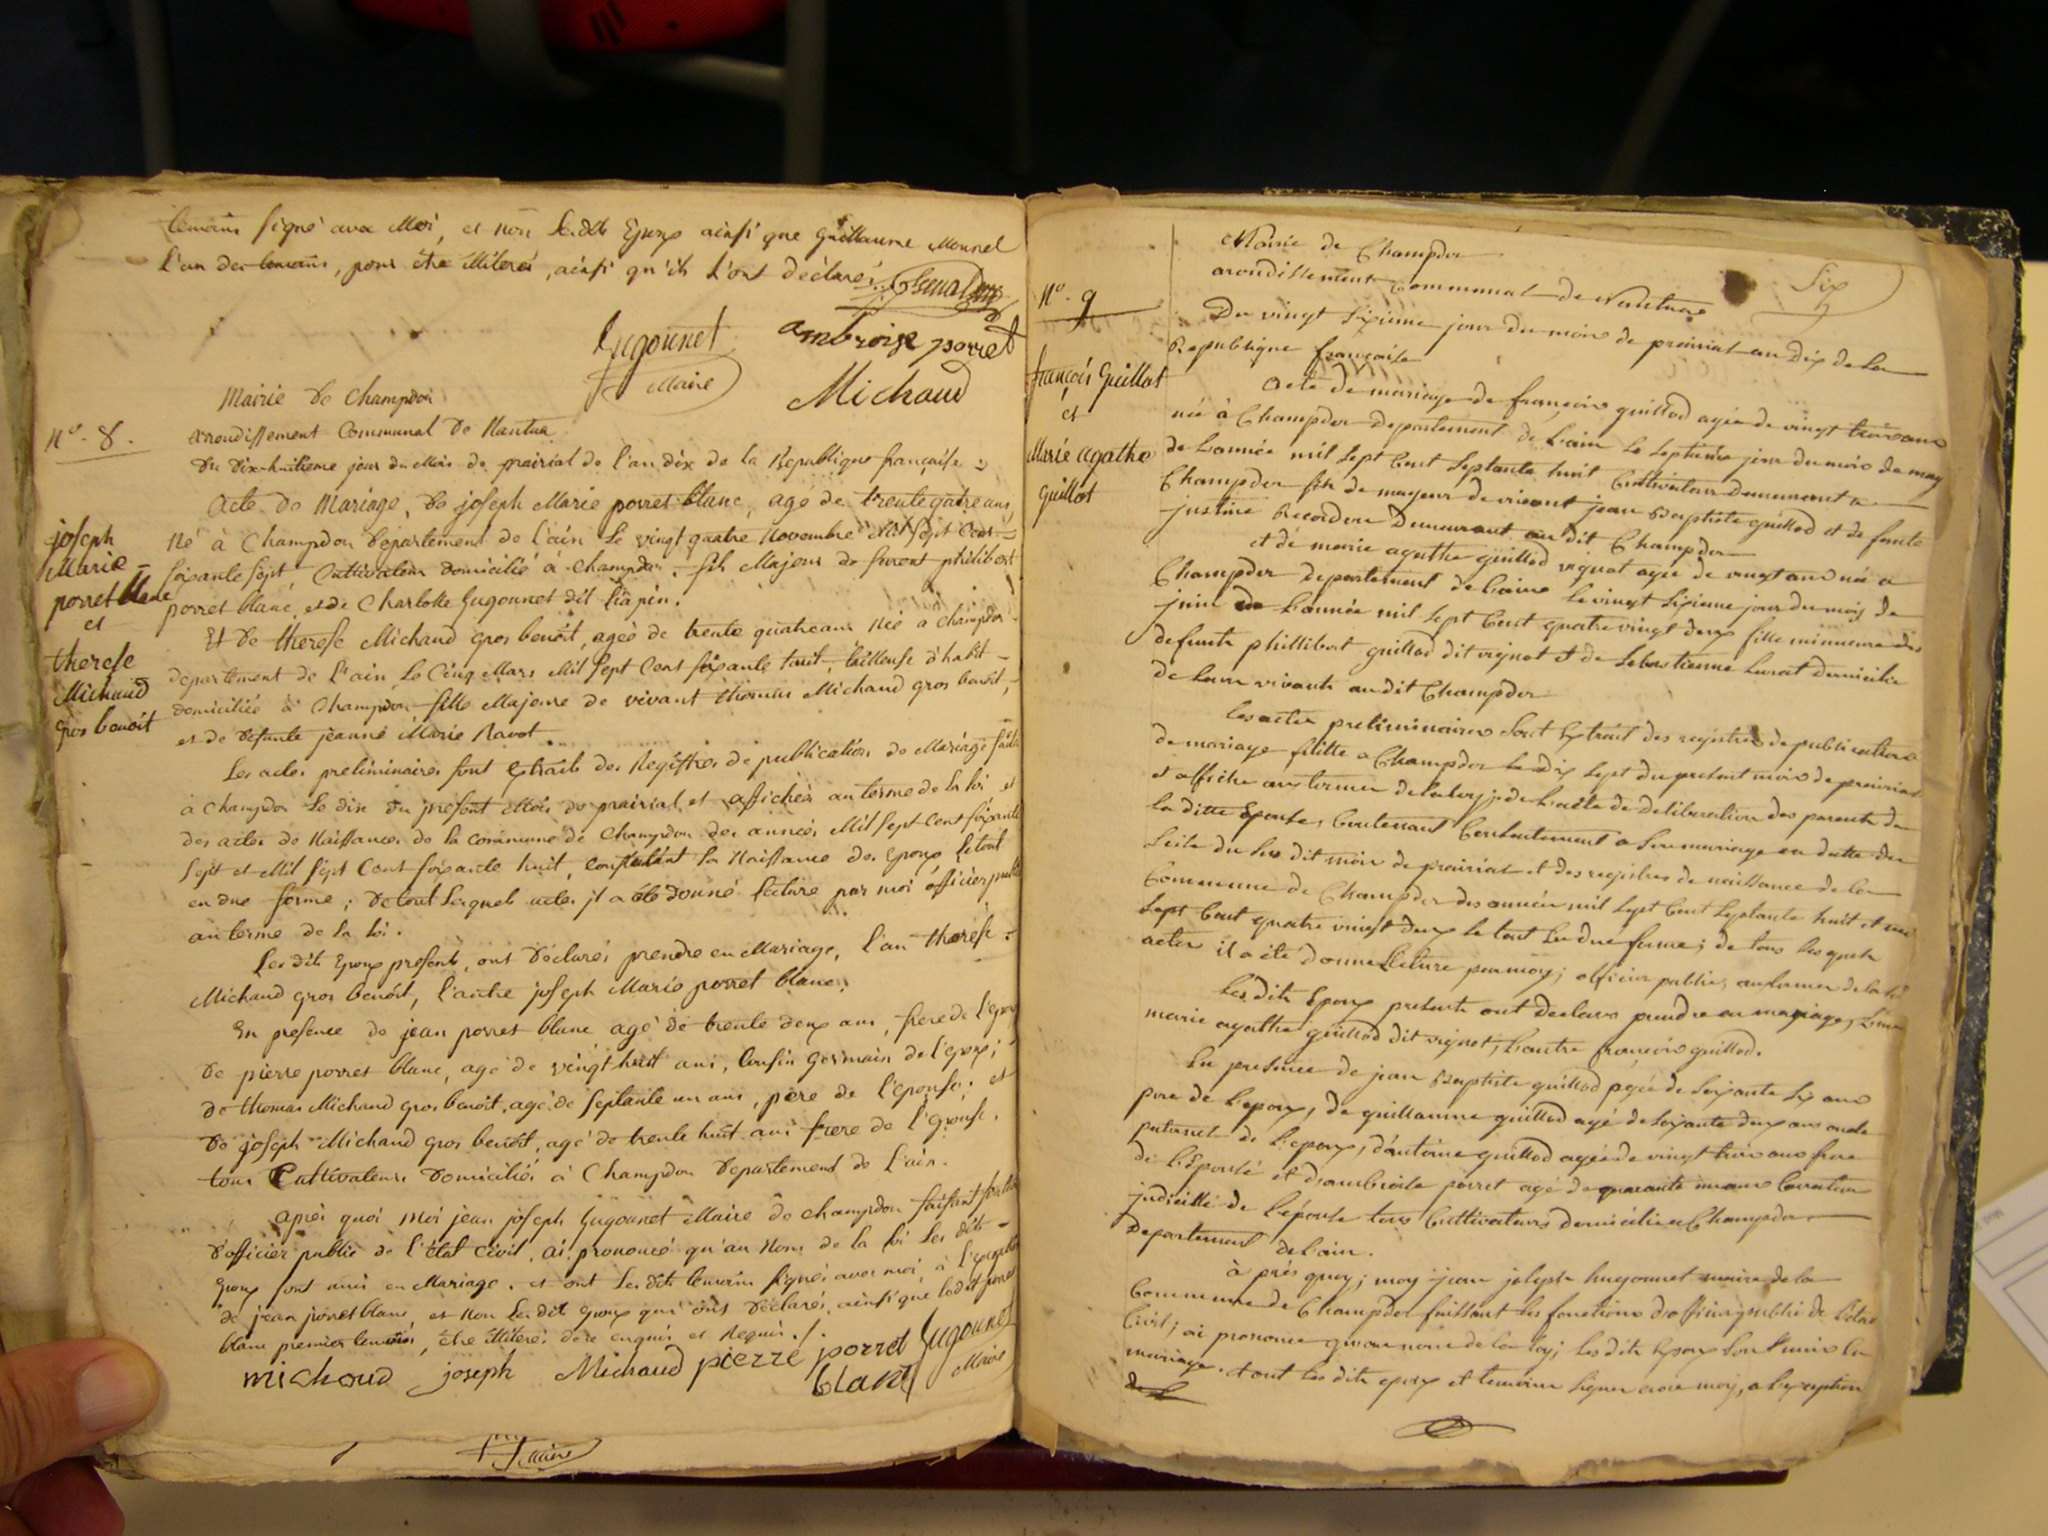 temoins signé avec Moi, et non Lesdits Epoux ainsi que Guillaume Monnet
l'un des temoins, pour être illiterés, ainsi qu'ils l'ont déclaré.
Gugonnet
Maire
ambroise porret
Michaud
Mairie de Champdor
arrondissement Communal de Nantua
N°. 8.
Du dix-huitieme jour du Mois de prairial de l'an dix de la Republique française :
joseph
Marie
porret blanc
et
therese
Michaud
gros benoit
Acte de Mariage, de joseph Marie porret blanc, agé de trente quatre ans,
Né à Champdor Departement de l'ain le vingt quatre Novembre Mil Sept Cent
soixante sept, Cultivateur domicilié à champdor, fils Majeur de furent philibert
porret blanc, et de Charlotte Gugonnet dit
Et de therese Michaud gros benoît, ageé de trente quatre ans Née à champdor
departement de l'ain, le Cinq Mars Mil Sept Cent soixante huit, tailleuse d'habit
domiciliée à Champdor fille Majeure de vivant thomas Michaud gros benoit,
et de defunte jeanne Marie Ravot
Les actes preliminaires sont Extraits des Registres de publication de Mariage faits
à Champdor le dix du présent Mois de prairial et affichés au terme de la loi et
des actes de Naissances de la commune de Champdor des années Mil Sept Cent soixante
Sept et Mil Sept Cent soixante huit, constatant la Naissance des Epoux Le tout
en due forme ; de tout lesquels actes il a été donné lecture par moi officier public
au terme de la loi.
Les dits Epoux presents, ont declarés prendre en Mariage, l'un therese
Michaud gros benoit, l'autre joseph Marie porret blanc.
En presence de jean porret blanc agé de trente deux ans, frere de l'epoux
de pierre porret blanc, agé de vingt huit ans, Cousin Germain de l'epoux ;
de thomas Michaud gros benoit, agé de Septante un ans, pere de l'epouse ; et
de joseph Michaud gros benoit, agé de trente huit ans frere de l'Epouse,
tous Cultivateurs Domiciliés à Champdor Departement de l'ain.
après quoi Moi jean joseph Gugonnet Maire de champdor faisant fonction
d'officier public de l'état Civil, ai prononcé qu'au Nom de la loi Les dits
Epoux sont unis en Mariage. et ont Les dits temoins signés avec moi, à l'exception
de jean porret blanc et non Lesdit Epoux qui ont declarés, ainsi que ledit porret
blanc premier temoins, être illiterés de ce enquis et Requis ./.
michaud joseph Michaud pierre porret blanc Gugonnet
Maire
Maire
Six
Mairie de Champdor
arondissement Communal de Nantua
N°. 9
Du vingt sixieme jour du mois de prairial an dix de la
Republique françoise
françois Guillot
et
Marie agathe
Guillot
Acte de mariage de françois guillod agée de vingt trois ans
née à Champdor departement de L'ain le Septieme jour du mois de may
de Lannée mil Sept Cent Septante huit Cultivateur Demeurant a
Champdor fils de mayeur de vivant jean Baptiste guillod et de fante
justine Demeurant au dit Champdor
et de marie agathe guillod vignot agée de vingt ans née a
Champdor departement de L'ain Le vingt Sixieme jour du moy de
juin de Lannée mil Sept Cent quatre vingt deux fille minneure de
defunts phillibert guillod dit vignot et de Sebastienne Domicilie
de Leur vivants audit Champdor
Les actes preliminaires sont Extrait des registres de publication
de mariage faitte a Champdor Le dix Sept du present mois de prairial
et affiche aux termes de la loy, de Lacte de Deliberation des parents de
la ditte Epouse, Contenant Consentement a Son mariage en datte du
Seise du Sus dit mois de prairial et des registres de naissance de la
Commune de Champdor des années mil Sept Cent Septante huit et mil
Sept Cent quatre vingt deux le tout en due forme ; de tous les quels
actes il a été donné Lecture par moy ; officier public, au termes de la loi
Les dits Epoux presents ont declare prendre en mariage, L'un
marie agathe guillod dit vignot, L'autre françois guillod.
En presence de jean Baptiste guillod agée de Soixante Six ans
pere de L'epoux, de guillaume guillod agé de Soixante deux ans oncle
paternel de L'epoux, d'antoine guillod agée de vingt trois ans frere
de L'Epouse et d'ambroise porret agé de quarante ans Curateur
judicielle de L'épouse tous Cultivateurs domicilies a Champdor
Departement de L'ain.
à près quoy ; moy jean joseph hugonnet maire de la
Commune de Champdor faissant les fonctions d'officier public de L'état
Civil ; ai prononce qu'au nom de la loy ; les dits Epoux Sont unis en
mariage. et ont les dits epoux et temoins Signer avec moy, a L'exception